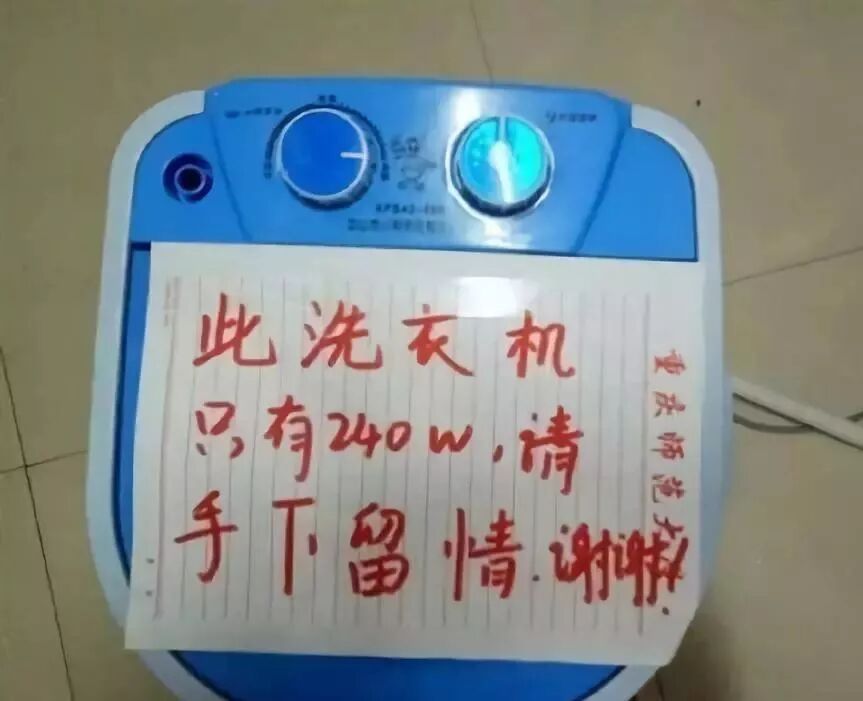 此洗衣机
只有240W,请
手下留情.谢谢!
重庆师范大